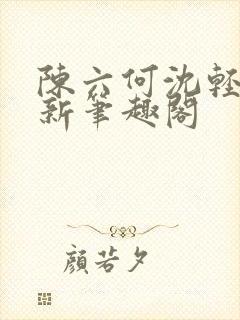 陳六何沈輕
新筆趣閣
顏若夕